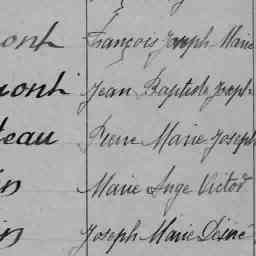 ont François Joseph Marie
mont Jean Baptiste Joseph
eau Pierre Marie Joseph
in Marie Ange Victor
in Joseph Marie Désiré